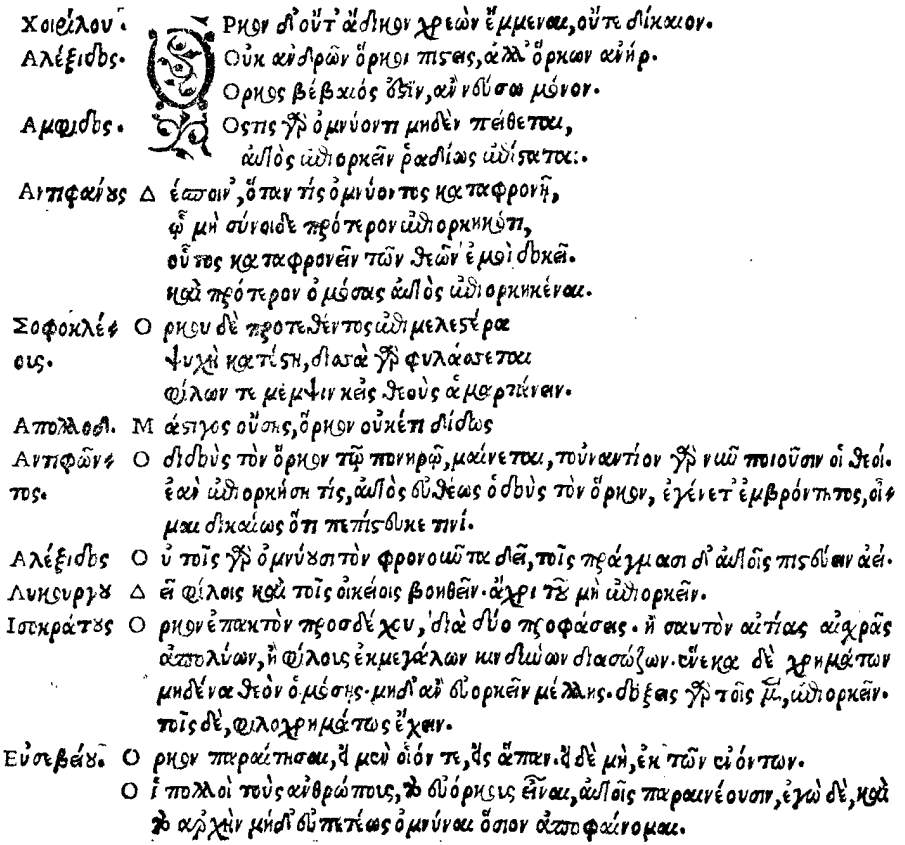 Χοιρίλου. Ὅρκον δ' οὔτ' ἄδικον χρεὼν ἔμμεναι, οὔτε δίκαιον.
Αλέξιδος. Οὐκ ἀνδρῶν ὅρκοι πίστεις, ἀλλ' ὅρκων ἀνήρ.
Ορκος βέβαιός ἐστιν, ἂν νεύσω μόνον.
Αμφιδος. Οστις γὰρ ὀμνύοντι μηδὲν πείθεται,
αὐτὸς ἐπιορκεῖν ῥαδίως ἐπίσταται.
Αντιφάνους Δ έσποιν', ὅταν τίς ὀμνύοντος καταφρονῇ,
ᾧ μὴ σύνοιδε πρότερον ἐπιορκηκότι,
οὗτος καταφρονεῖν τῶν θεῶν ἐμοὶ δοκεῖ.
καὶ πρότερον ὀμόσας αὐτὸς ἐπιορκηκέναι.
Σοφοκλέ- Ο ρκου δὲ προτεθέντος ἐπιμελεστέρα
ους. ψυχὴ κατέστη, δισσὰ γὰρ φυλάσσεται
φίλων τε μέμψιν κεἰς θεοὺς ἁμαρτάνειν.
Απολλοδ. Μ άστιγος οὔσης, ὅρκον οὐκέτι δίδως
Αντιφῶν- Ο διδοὺς τὸν ὅρκον τῷ πονηρῷ, μαίνεται, τοὐναντίον γὰρ νῦν ποιοῦσιν οἱ θεοί.
τος. ἐὰν ἐπιορκήσῃ τίς, αὐτὸς εὐθέως ὁ δοὺς τὸν ὅρκον, ἐγένετ' ἐμβρόντητος, οἶ-
μαι δικαίως ὅτι πεπίστευκε τινί.
Αλέξιδος Ο ὐ τοῖς γὰρ ὀμνύουσι τὸν φρονοῦντα δεῖ, τοῖς πράγμασι δ' αὐτοῖς πιστεύειν ἀεί.
Λυκουργου Δ εῖ φίλοις καὶ τοῖς οἰκείοις βοηθεῖν. ἄχρι τοῦ μὴ ἐπιορκεῖν.
Ισοκράτους Ο ρκον ἐπακτὸν προσδέχου, διὰ δύο προφάσεις. ἢ σαυτὸν αἰτίας αἰχρᾶς
ἀπολύων, ἢ φίλοις ἐκ μεγάλων κινδύνων διασώζων. ἕνεκα δὲ χρημάτων
μηδένα θεὸν ὀμόσῃς. μηδ' ἂν εὐορκεῖν μέλλῃς. δόξεις γὰρ τοῖς μὲν, ἐπιορκεῖν.
τοῖς δὲ, φιλοχρημάτως ἔχειν.
Εὐσεβείου. Ο ρκον παραίτησαι, εἰ μὲν οἷόν τε, εἰς ἅπαν. εἰ δὲ μὴ, ἐκ τῶν ἐνόντων.
Ο ἱ πολλοὶ τοὺς ἀνθρώποις, τὸ εὐόρκεις εἶναι, αὐτοῖς παραινέουσιν, ἐγὼ δὲ, καὶ
τὸ ἀρχὴν μήδ' εὐπετέως ὀμνύναι ὅσιον ἀποφαίνομαι.